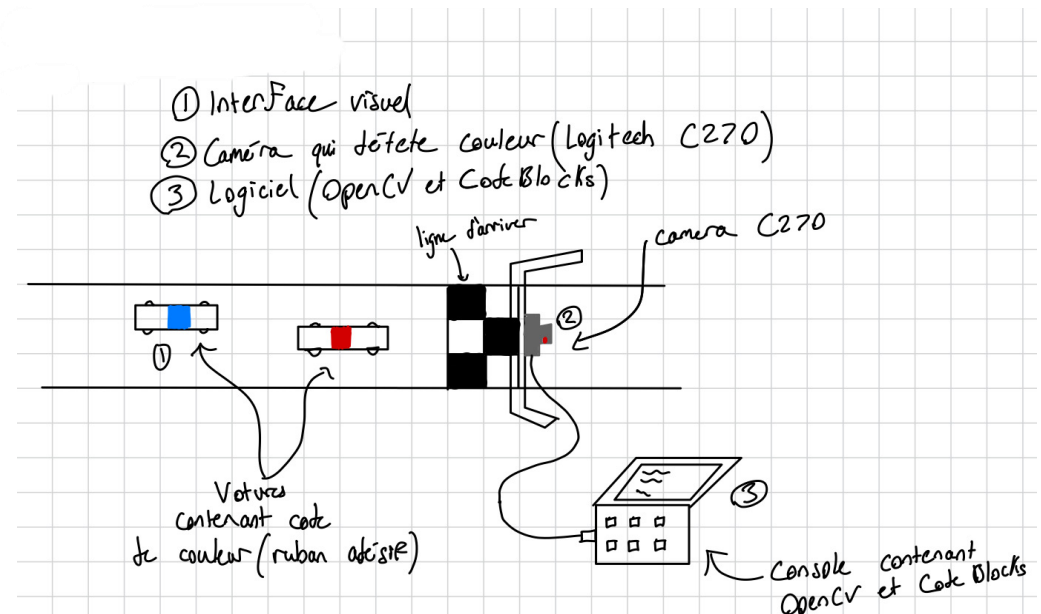 ① InterFace visuel
② Caméra qui détete couleur (Logitech C270)
③ Logiciel (OpenCV et CodeBlocks)
ligne d'arriver
camera C270
②
①
Votures
contenant code
de couleur (ruban adésif)
③
Console contenant
OpenCV et Code Blocks